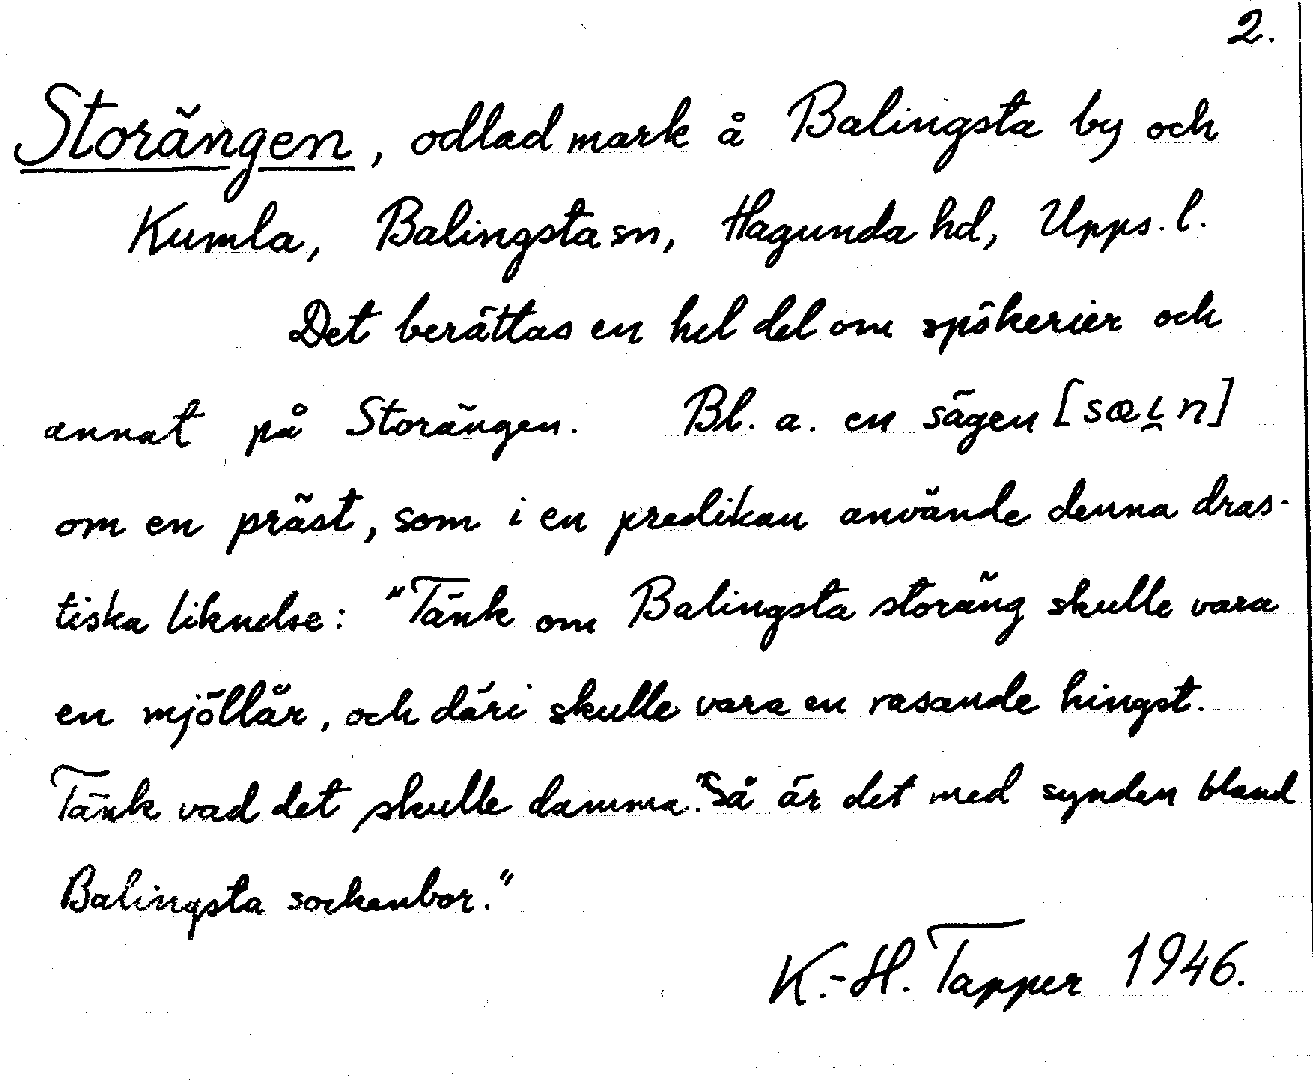 2.
Storängen, odlad mark å Balingsta by och
Kumla, Balingsta sn, Hagunda hd, Upps. l.
Det berättas en hel del om spökerier och
annat på Storängen. Bl. a. en sägen
om en präst, som i en predikan använde denna dras-
tiska liknelse: "Tänk om Balingsta storäng skulle vara
en mjöllår, och däri skulle vara en rasande hingst.
Tänk vad det skulle damma." Så är det med synden bland
Balingsta sockenbor."
K.-H. Tapper 1946.